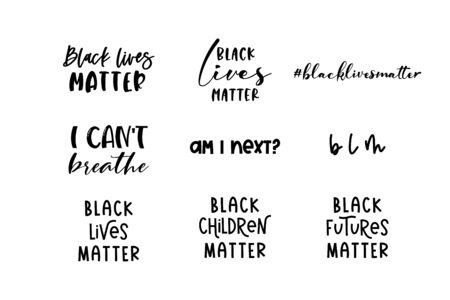 Black lives
MATTER
BLACK
lives
MATTER
#blacklivesmatter
I CAN'T
breathe
am I next?
blm
BLACK
LiVES
MATTER
BLACK
CHiLDREN
MATTER
BLACK
FUTURES
MATTER